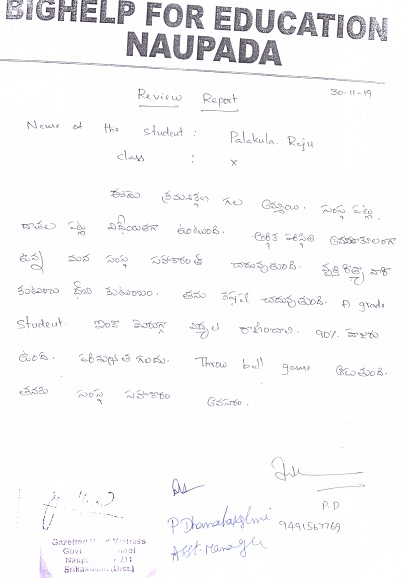 BIGHELP FOR EDUCATION
NAUPADA
Review Report
30-11-19
Name of the student : Palakula. Raju
class : X
ఈమె క్రమశిక్షణ గల అమ్మాయి. సంస్థ పట్ల,
దాతల పట్ల విధేయతగా ఉంటుంది. ఆర్థిక పరిస్థితి
ఉన్న మన సంస్థ సహకారంతో చదువుతుంది. వృత్తి
కుటుంబం కుటుంబం. తను కష్టపడి చదువుతుంది. A grade
student. ఇంకా మెరుగ్గా రాణించాలి. 90% హాజరు
ఉంది. పరిశుభ్రత గలదు. Throw ball game ఆడుతుంది.
తనకు సంస్థ సహకారం అవసరం.
P. Dhanalakshmi
Asst. Manager
P.D
9491567769
Gazetted Mistress
Govt.
Naupa
Srikakulam (Dist.)